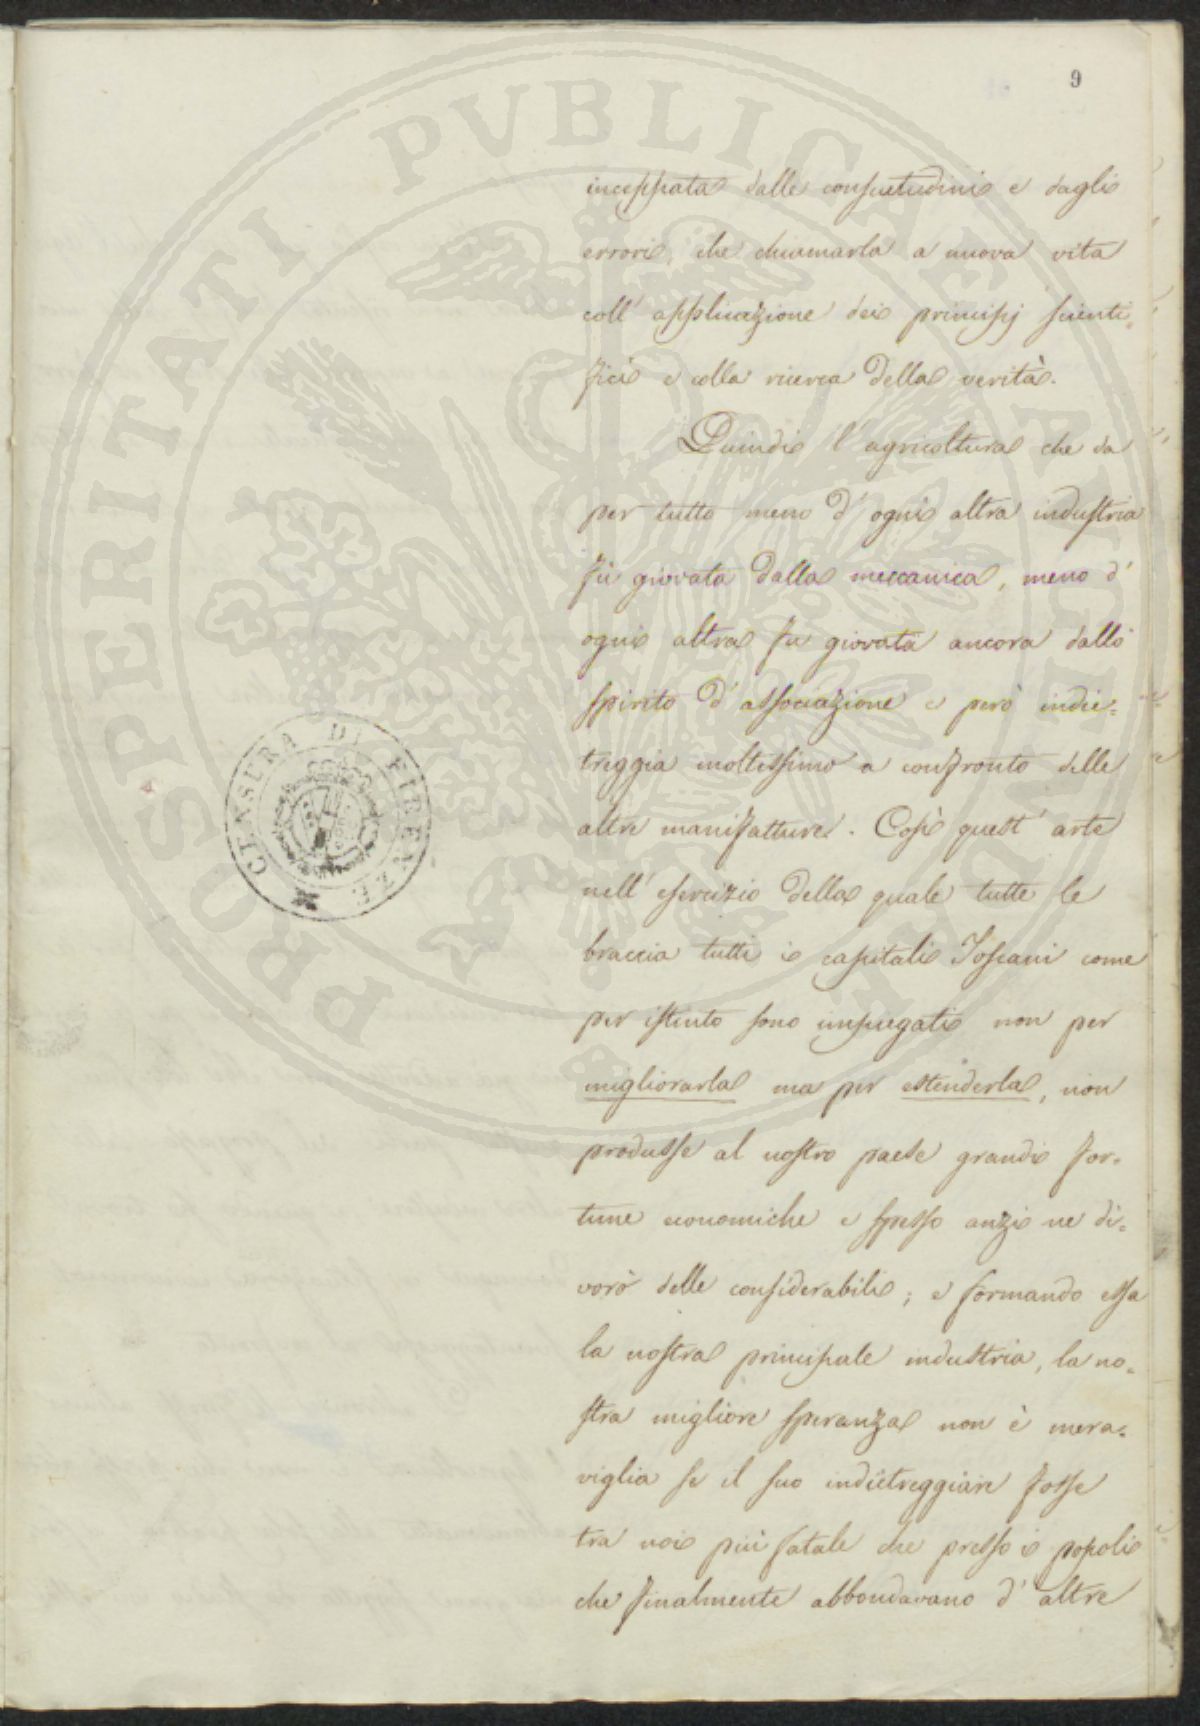 9
inceppata dalle consuetudini e dagli
errori, che chiamarla a nuova vita
coll' applicazione dei principj scienti=
fici e colla ricerca della verità.
Quindi l' agricoltura che da
per tutto meno d' ogni altra industria
fù giovata dalla meccanica, meno d'
ogni altra fu giovata ancora dallo
spirito d' associazione e però indie=
treggia moltissimo a confronto delle
altre manifatture. Così quest' arte
nell' esercizio della quale tutte le
braccia tutti i capitali Toscani come
per istinto sono impiegati non per
migliorarla ma per estenderla, non
produsse al nostro paese grandi for=
tune economiche e spesso anzi ne di=
vorò delle considerabili; e formando essa
la nostra principale industria, la no=
stra migliore speranza non è mera=
viglia se il suo indietreggiare fosse
tra noi più fatale che presso i popoli
che finalmente abbondavano d' altre
CENSURA DI FIRENZE
PROSPERITATI PVBLICAE AVGENDAE